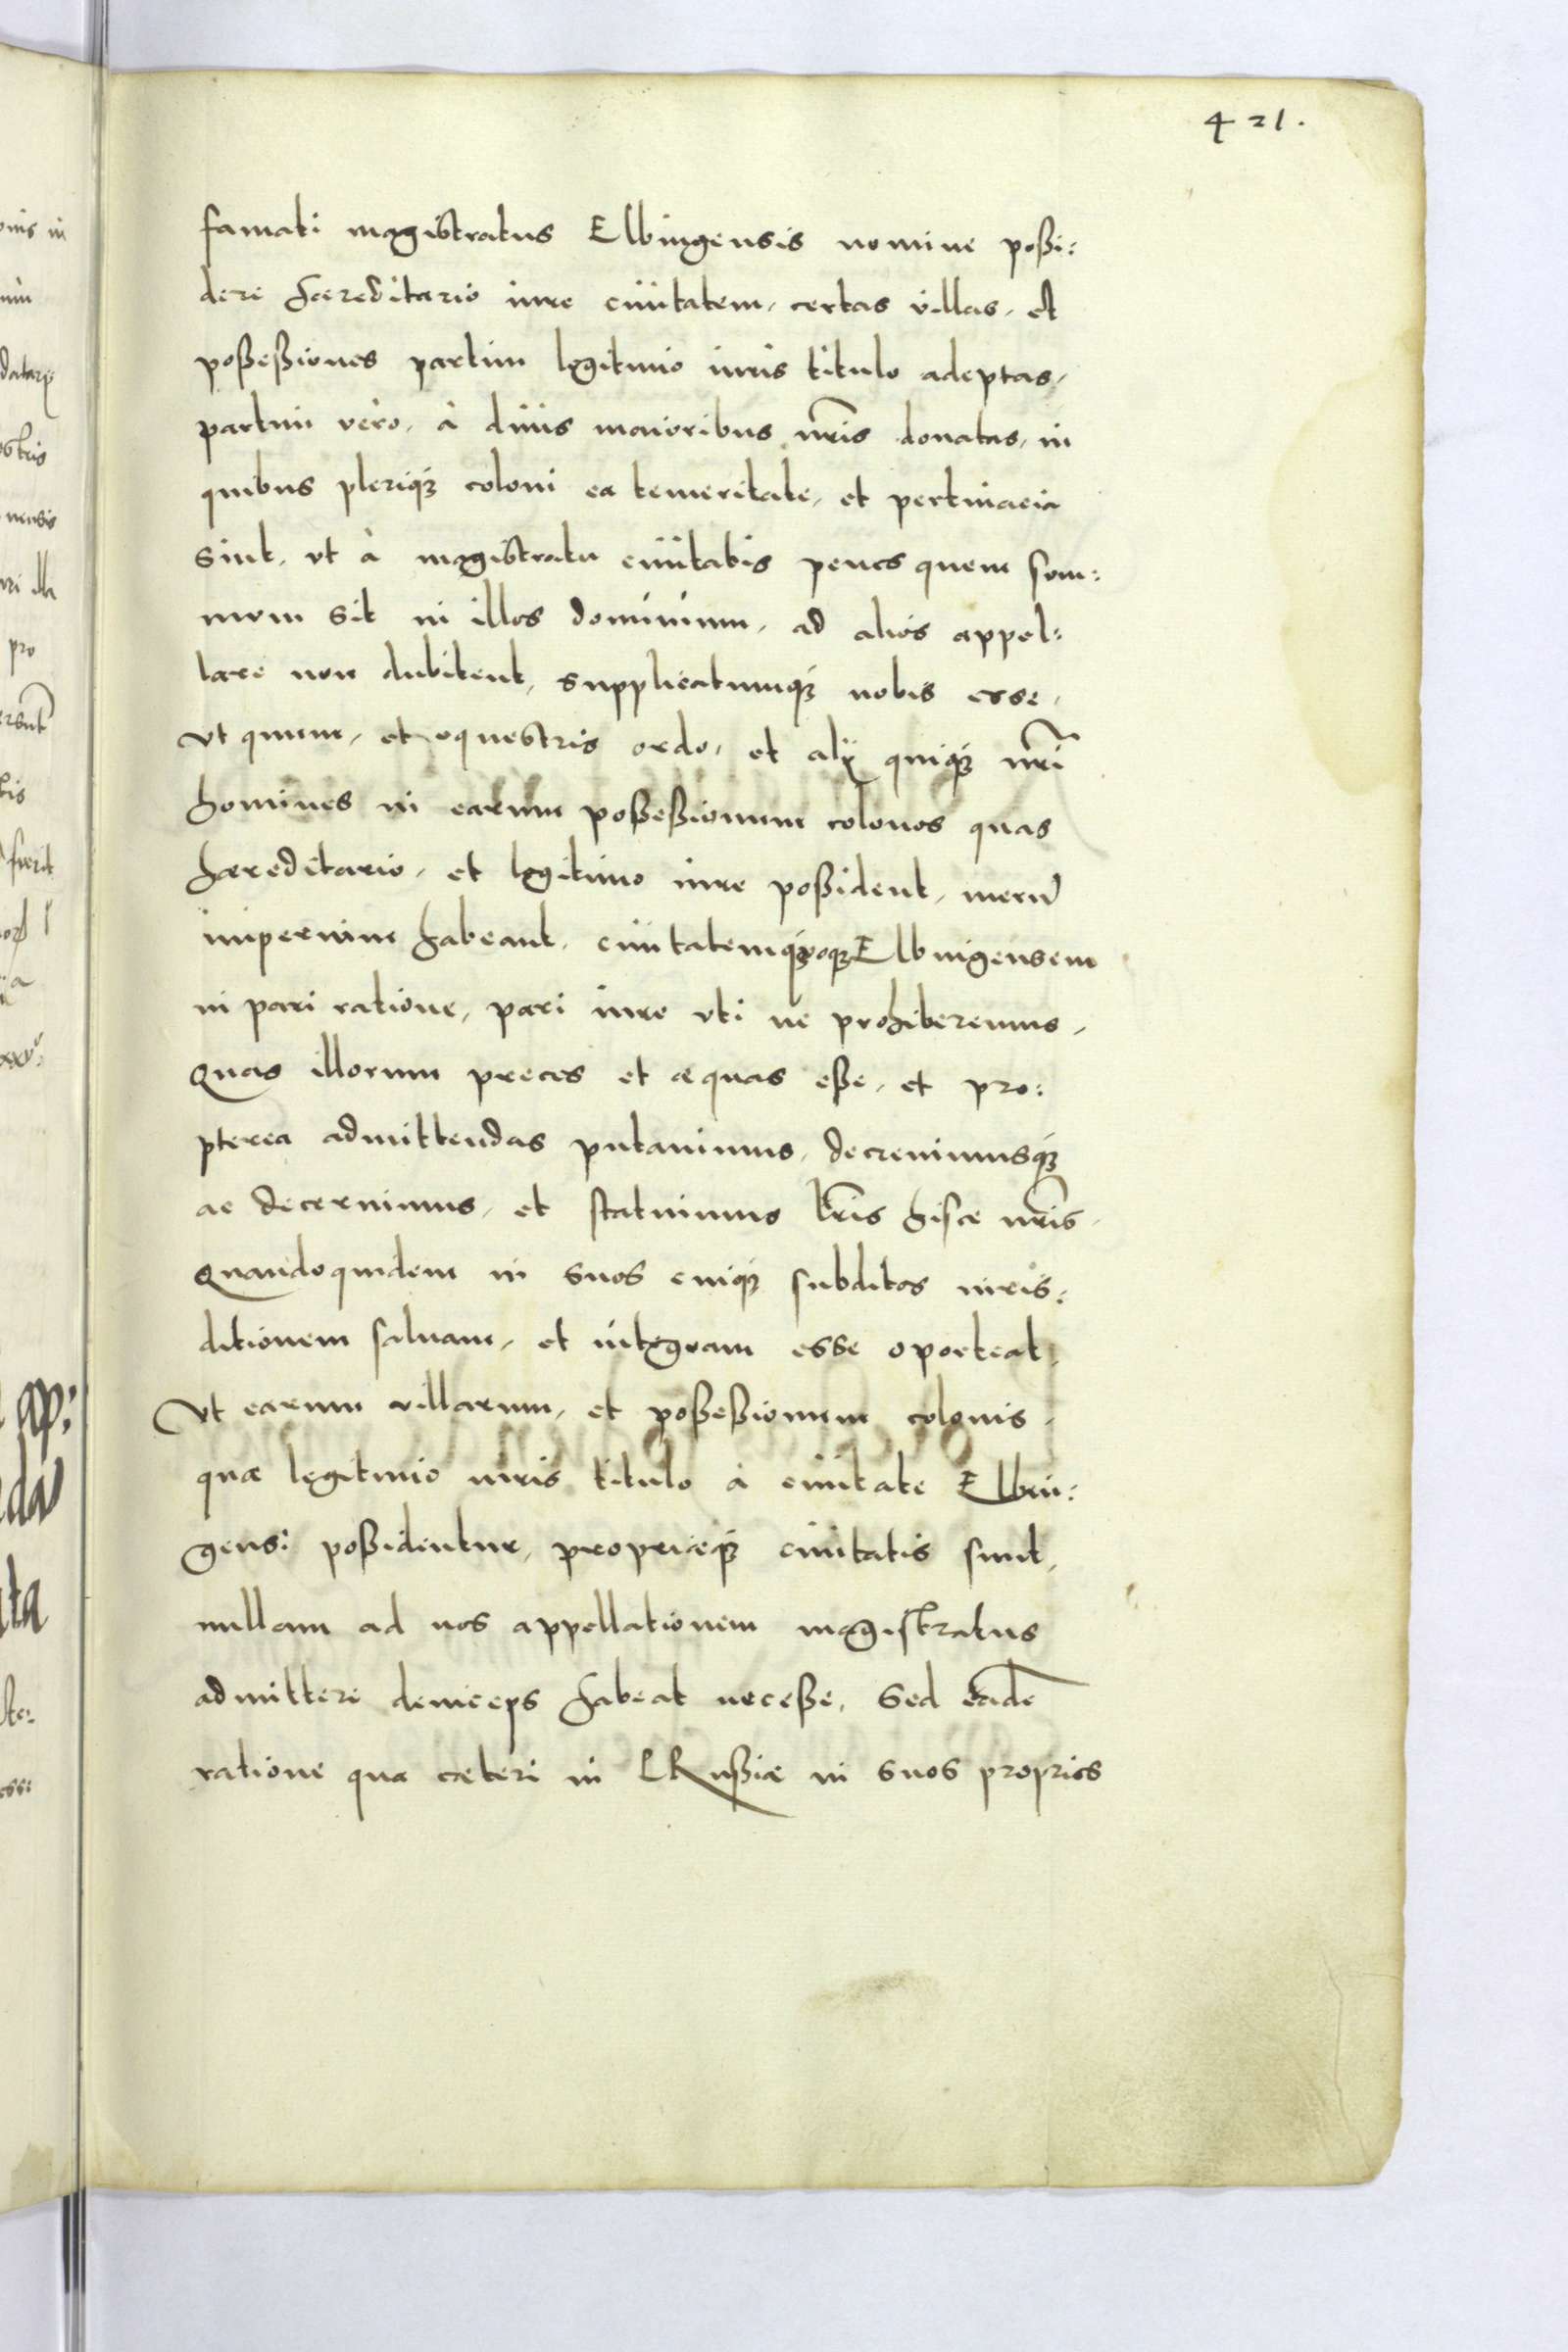 421.
famati magistratus Elbingensis nomine poßi:
dere hæreditario iure ciuitatem, certas villas, et
poßeßiones partim legitimo iuris titulo adeptas,
partim vero, à diuis maioribus nr̃is donatas, in
quibus pleriqꝫ coloni ea temeritate, et pertinacia
sint, vt à magistratu ciuitatis penes quem sum:
mum sit in illos dominium, ad alios appel:
lare non dubitent, supplicatumqꝫ nobis esse,
vt quum, et equestris ordo, et alij quiqꝫ nr̃i
homines in earum poßeßionum colonos quas
hæreditario, et legitimo iure poßident, merũ
imperium habeant, ciuitatem quoqꝫ Elbingensem
in pari ratione, pari iure vti ne prohiberemus,
Quas illorum preces et æquas eße, et pro:
pterea admittendas putauimus, decreuimusqꝫ
ac decernimus, et statuimus lr̃is hisce nr̃is,
Quandoquidem in suos cuiqꝫ subditos iuris:
ditionem saluam, et integram esse oporteat,
vt earum villarum, et poßeßionum colonis,
quæ legitimo iuris titulo à ciuitate Elbin:
gensi poßidentur, propriæqꝫ ciuitatis sunt,
nullam ad nos appellationem magistratus
admittere deinceps habeat neceße, Sed eadẽ
ratione qua cæteri in Prußia in suos proprios